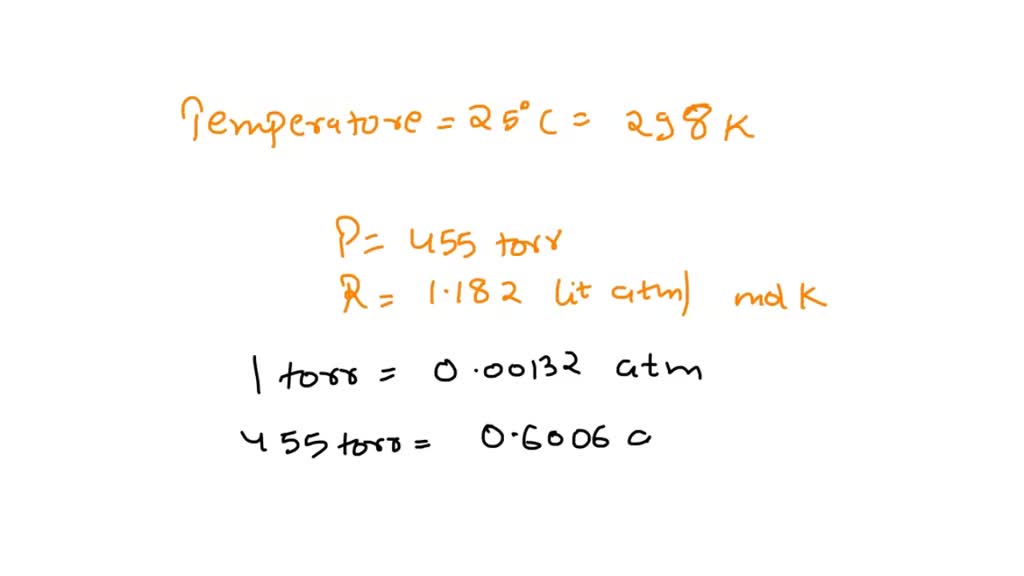 Temperatore = 25°C = 298 K
P= 455 torr
R = 1.182 lit atm/ mol K
1 torr = 0.00132 atm
455 torr = 0.6006 a